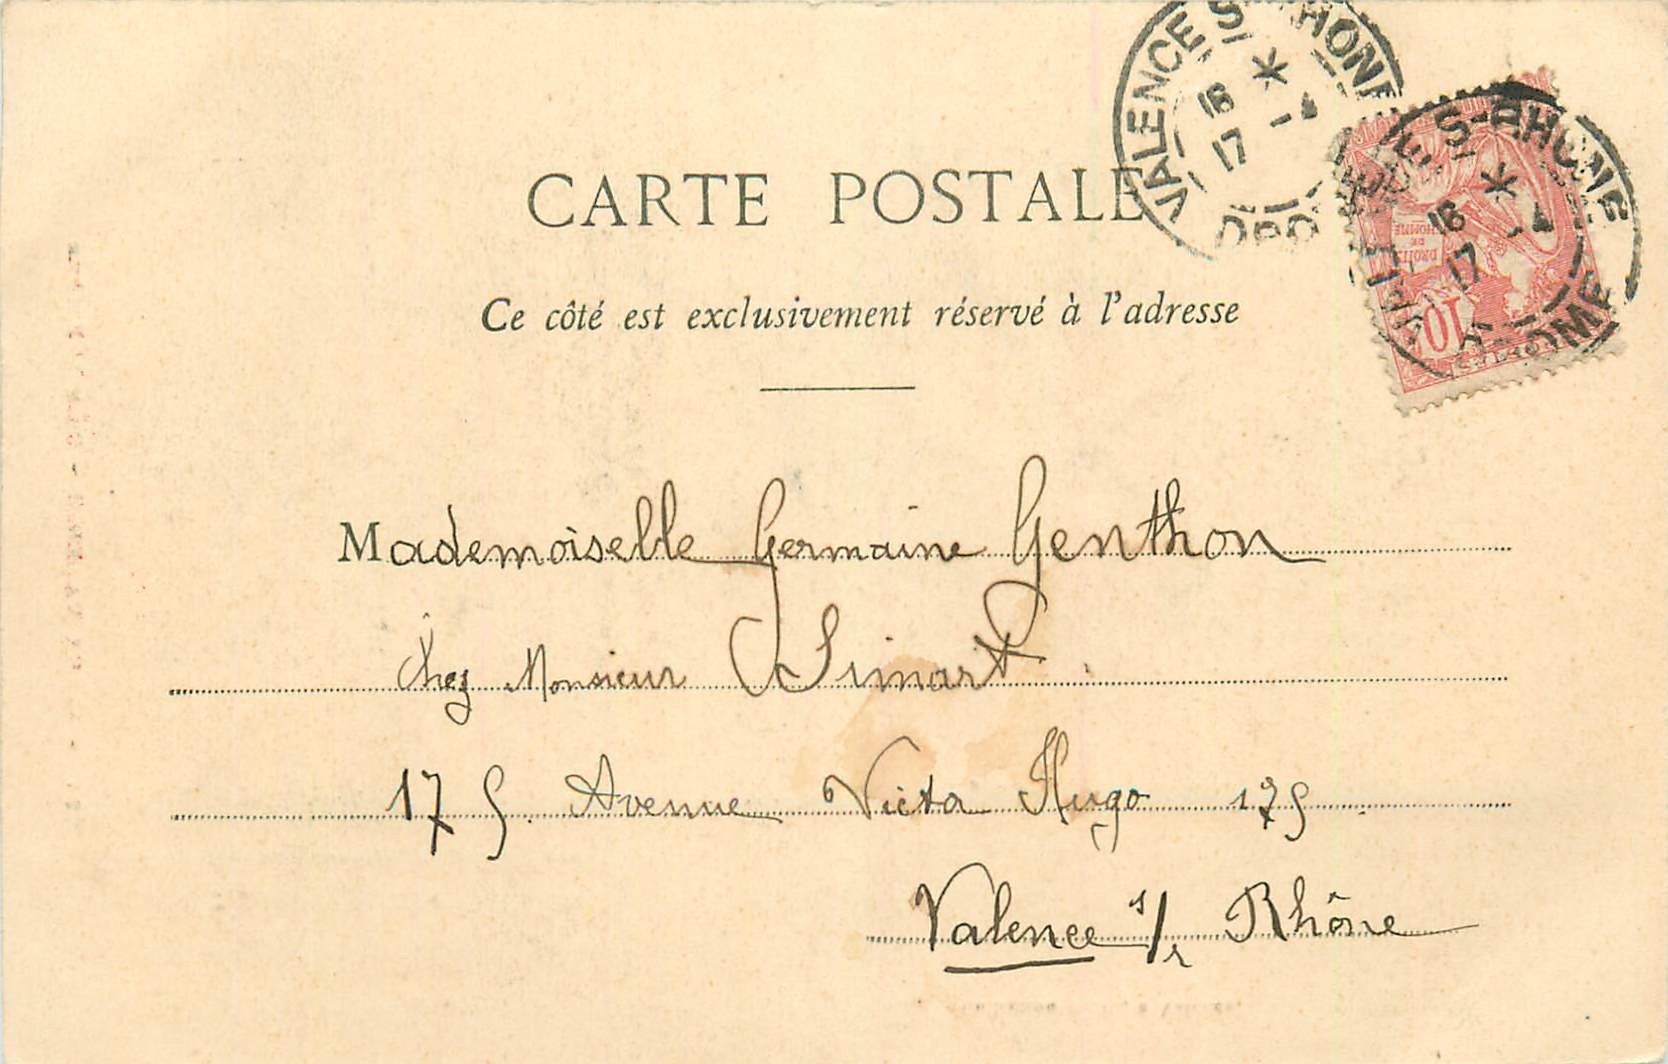 CARTE POSTALE
Ce côté est exclusivement réservé à l'adresse
VALENCE S-RHONE
18 *
17 -
Mademoiselle Germaine Genthon
Chez Monsieur Simart
175. Avenue Victor Hugo 175
Valence s/r Rhône
VALENCE S-RHONE
18 *
17 -
DROME
DROITS DE L'HOMME
10